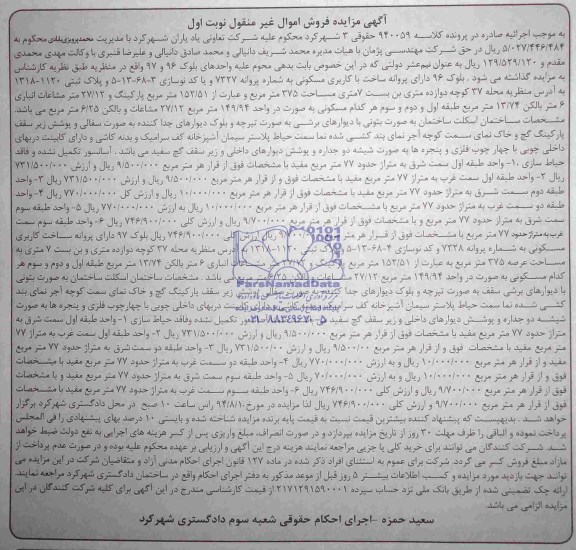 آگهی مزایده فروش اموال غیر منقول نوبت اول
به موجب اجرائیه صادره در پرونده کلاسه ۹۴۰۰۵۹ حقوقی ۳ شهرکرد محکوم علیه شرکت تعاونی یاد یاران شهرکرد با مدیریت محکوم به
۵/۰۲۷/۴۴۶/۴۸۴ ریال در حق شرکت مهندسی پژمان با هیات مدیره محمد شریف دانیالی و محمد صادق دانیالی و علیرضا قنبری با وکالت مهدی محمدی
مقدم و ۱۲۹/۵۲۹/۱۲۰ ریال به عنوان نیم‌عشر دولتی که در این خصوص بابت بدهی محکوم علیه واحدهای بلوک ۹۶ و ۹۷ واقع در منظریه طبق نظریه کارشناس
به مزایده گذاشته می شود. بلوک ۹۶ دارای پروانه ساخت با کاربری مسکونی به شماره پروانه ۷۳۲۷ و با کد نوسازی ۳-۶۸-۱۳-۵ و پلاک ثبتی ۱۱۲۰-۱۳۱۸
به آدرس منظریه محله ۳۷ کوچه دوازده متری بن بست ۷متری مساحت ۳۷۵ متر مربع و عبارت از ۱۵۲/۵۱ متر مربع پارکینگ و ۲۷/۱۲ متر مشاعات انباری
۶ متر بالکن ۱۳/۷۴ متر مربع طبقه اول و دوم و سوم هر کدام مسکونی به صورت در واحد ۱۴۹/۹۴ متر مربع و ۲۷/۱۲ مشاعات و بالکن ۶/۲۵ متر مربع می باشد.
مشخصات ساختمان اسکلت ساختمان به صورت بتونی با دیوارهای برشی به صورت تیرچه و بلوک دیوارهای جدا کننده به صورت سفالی و پوشش زیر سقف
پارکینگ گچ و خاک نمای سمت کوچه آجر نمای بند کشی شده نما سمت حیاط پلاستر سیمان آشپزخانه کف سرامیک و بدنه کاشی و دارای کابینت دربهای
داخلی چوبی با چهار چوب فلزی و پنجره ها به صورت شیشه دو جداره و پوشش دیوارهای داخلی و زیر سقف گچ سفید می باشد. آسانسور تکمیل نشده و فاقد
حیاط سازی ۱-واحد طبقه اول سمت شرق به متراژ حدود ۷۷ متر مربع مفید با مشخصات فوق از قرار هر متر مربع ۹/۵۰۰/۰۰۰ ریال و ارزش ۷۳۱/۵۰۰/۰۰۰
ریال ۲-واحد طبقه اول سمت غرب به متراژ ۷۷ متر مربع مفید با مشخصات فوق و از قرار هر متر مربع ۹/۵۰۰/۰۰۰ ریال و ارزش ۷۳۱/۵۰۰/۰۰۰ ریال ۳-واحد
طبقه دوم سمت شرق به متراژ حدود ۷۷ متر مربع با مشخصات فوق و از قرار هر متر مربع ۱۰/۰۰۰/۰۰۰ ریال و ارزش کل ۷۷۰/۰۰۰/۰۰۰ ریال ۴-واحد
طبقه دو سمت غرب به متراژ ۷۷ متر مربع با مشخصات فوق و از قرار هر متر مربع ۱۰/۰۰۰/۰۰۰ ریال به ارزش ۷۷۰/۰۰۰/۰۰۰ ریال ۵-واحد طبقه سوم
سمت شرق به متراژ حدود ۷۷ متر مربع و با مشخصات فوق و از قرار هر متر مربع ۹/۷۰۰/۰۰۰ ریال و ارزش کلی ۷۴۶/۹۰۰/۰۰۰ ریال ۶-واحد طبقه سوم سمت
غرب به متراژ حدود ۷۷ متر مربع با مشخصات فوق از قرار هر متر مربع ریال ارزش ۷۴۶/۹۰۰/۰۰۰ ریال بلوک ۹۷ دارای پروانه ساخت باکاربری
مسکونی به شماره پروانه ۷۳۲۸ و کد نوسازی ۴-۶۸-۱۳-۵ ۱۳۱۸ آدرس منظریه محله ۳۷ کوچه دوازده متری و بن بست ۷ متری به
مساحت عرصه ۳۷۵ متر مربع به عبارت از ۱۵۲/۵۱ متر مربع انباری ۶ متر بالکن ۱۳/۷۴ متر مربع طبقه اول و دوم و سوم هر
کدام مسکونی به صورت در واحد ۱۴۹/۹۴ متر مربع ۲۷/۱۲ مشاعات و بالکن ۶/۲۵ متر مربع می باشد. مشخصات ساختمان اسکلت ساختمان به صورت بتونی
با دیوارهای برشی سقف به صورت تیرچه و بلوک دیوارهای جدا زیر سقف پارکینگ گچ و خاک نمای سمت کوچه آجر نمای بند
کشی شده نما سمت حیاط پلاستر سیمان آشپزخانه کف دربهای داخلی چوبی با چهارچوب فلزی و پنجره ها به صورت
شیشه دو جداره و پوشش دیوارهای داخلی و زیر سقف گچ تکمیل نشده وفاقد حیاط سازی ۱-واحد طبقه اول سمت شرق به
متراژ حدود ۷۷ متر مربع مفید با مشخصات فوق و از قرار هر متر مربع ۹/۵۰۰/۰۰۰ ریال و ارزش ۷۳۱/۵۰۰/۰۰۰ ریال ۲-واحد طبقه اول سمت غرب به متراژ ۷۷
متر مربع مفید با مشخصات فوق و از قرار هر متر مربع ۹/۵۰۰/۰۰۰ ریال و ارزش ۷۳۱/۵۰۰/۰۰۰ ریال ۳-واحد طبقه دو سمت شرق به متراژ حدود ۷۷ متر مربع
مفید و از قرار هر متر مربع ۱۰/۰۰۰/۰۰۰ ریال و به ارزش ۷۷۰/۰۰۰/۰۰۰ ریال ۴-واحد طبقه دو سمت غرب به متراژ ۷۷ متر مربع مفید با مشخصات
فوق و از قرار هر متر مربع ۱۰/۰۰۰/۰۰۰ ریال و به ارزش ریال ۵-واحد طبقه سوم سمت شرق به متراژ حدود ۷۷ متر مربع مفید و با مشخصات
فوق و از قرار هر متر مربع ۹/۷۰۰/۰۰۰ ریال و ارزش کلی ۷۴۶/۹۰۰/۰۰۰ ریال ۶-واحد طبقه سوم سمت غرب به متراژ حدود ۷۷ متر مربع مفید با مشخصات
فوق و از قرار هر متر مربع ۹/۷۰۰/۰۰۰ ریال و ارزش کلی ۷۴۶/۹۰۰/۰۰۰ ریال لذا مزایده در مورخ ۹۴/۸/۱۰ راس ساعت ۱۰ صبح در محل دادگستری شهرکرد برگزار
خواهد شد. بدیهیست که پیشنهاد کننده بیشترین قیمت نسبت به قیمت پایه برنده مزایده شناخته شده و بایستی ۱۰ درصد بهای پیشنهادی را فی المجلس
پرداخت نموده و الباقی را ظرف مهلت ۳۰ روز از تاریخ مزایده بپردازد و در صورت انصراف، مبلغ واریزی پس از کسر هزینه های اجرایی به نفع دولت ضبط خواهد
شد. شرکت کنندگان می توانند برای خرید کلی یا جزیی مراجعه نمایند هزینه درج این آگهی و ارزیابی بر عهده محکوم علیه بوده و در صورت عدم پرداخت از
مازاد مبلغ فروش کسر می گردد. شرکت برای عموم به استثنای افراد ذکر شده در ماده ۱۲۷ قانون اجرای احکام مدنی آزاد و متقاضیان شرکت در این مزایده می
توانند جهت بازدید مورد مزایده و کسب اطلاعات بیشتر ۵ روز قبل از موعد مذکور به دفتر اجرای احکام واقع در ساختمان دادگستری شهرکرد مراجعه نمایند.
ارائه چک تضمینی شده از طریق بانک ملی نزد حساب سپرده ۲۱۷۱۲۹۱۵۹۰۰۰۱ از قیمت کارشناسی مندرج در این آگهی برای کلیه شرکت کنندگان در این
مزایده الزامی می باشد.
سعید حمزه -اجرای احکام حقوقی شعبه سوم دادگستری شهرکرد
ParsNamadData
۰۲۱-۸۸۳۴۹۶۷۰-۵